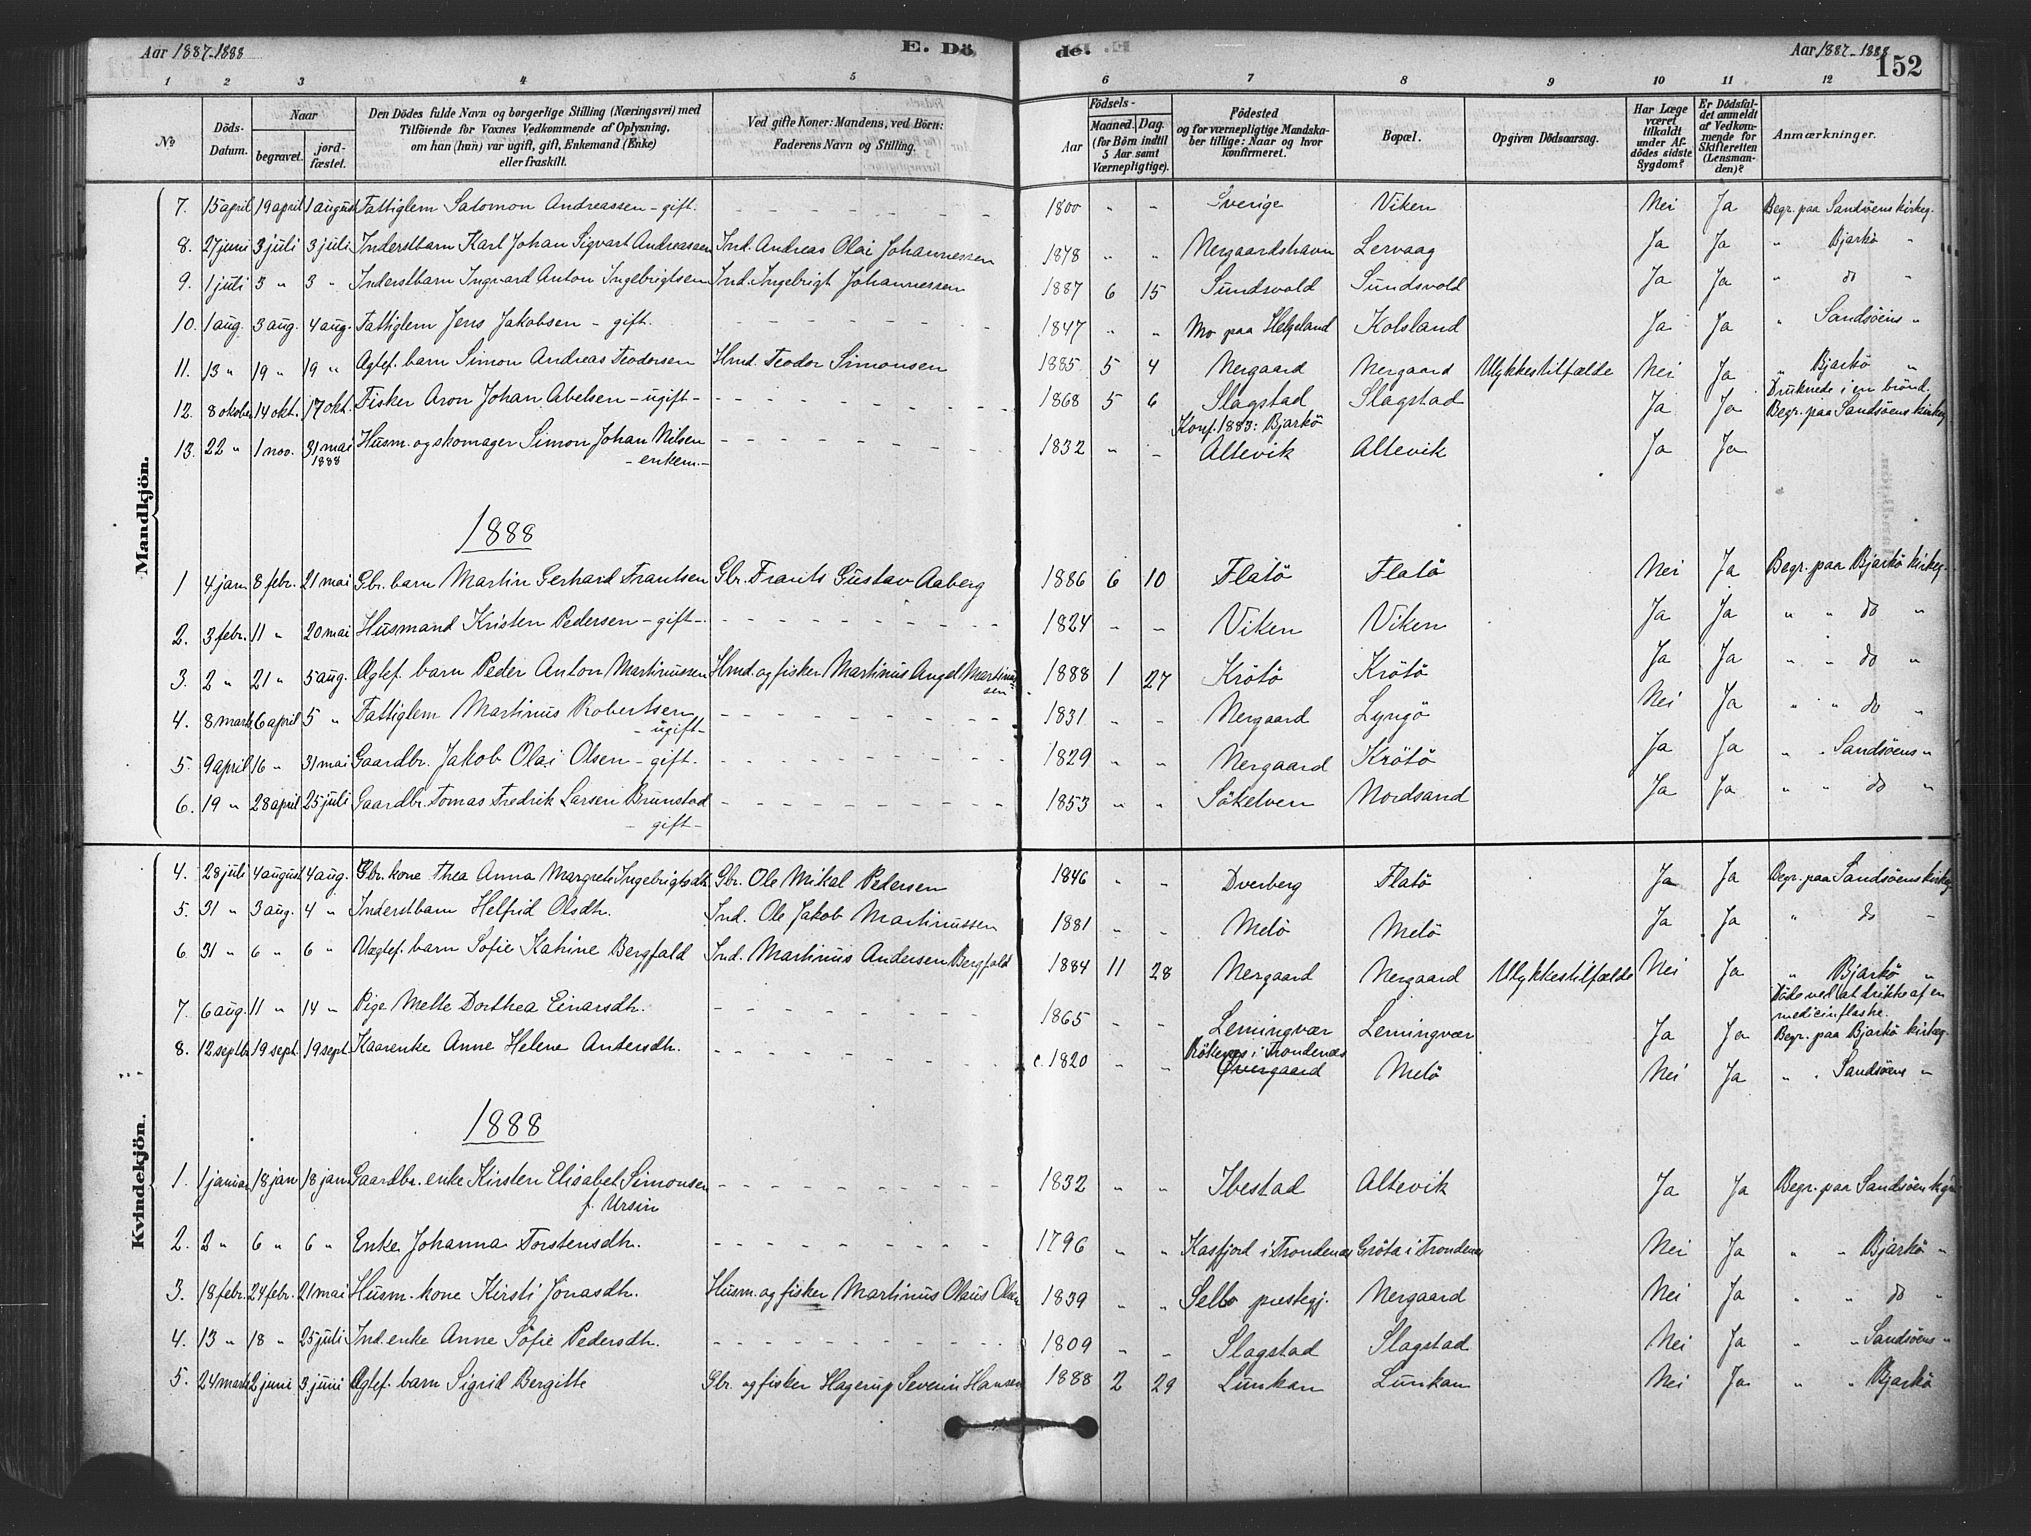 Aar 1887-1888 E. Döde. Aar 1887-1888 152
1 2 3 4 5 6 7 8 9 10 11 12
No
Döds-Datum.
Naar
begravet. jordfæstet.
Den Dödes fulde Navn og borgerlige Stilling (Næringsvei) med
Tilföiende for Voxnes Vedkommende af Oplysning,
om han (hun) var ugift, gift, Enkemand (Enke)
eller fraskilt.
Ved gifte Koner: Mandens, ved Börn:
Faderens Navn og Stilling.
Aar
Födsels-
Maaned. Dag.
(for Börn indtil
5 Aar samt
Værnepligtige).
Födested
og for værnepligtige Mandska-
ber tillige: Naar og hvor
konfirmeret.
Bopæl.
Opgiven Dödsaarsag.
Har Læge
været
tilkaldt
under Af-
dödes sidste
Sygdom?
Er Dödsfal-
det anmeldt
af Vedkom-
mende for
Skifteretten
(Lensman-
den)?
Anmærkninger.
Mandkjön.
7. 15 april 19 april 1 august Fattiglem Salomon Andreassen - gift. 1800 " " Sverige Viken Nei Ja Begr. paa Sandsöens kirkeg.
8. 27 juni 3 juli 3 juli Inderstbarn Karl Johan Sigvart Andreassen Ind. Andreas Olai Johannessen 1878 " " Nergaardshavn Lervaag Ja Ja " Bjarkö "
9. 1 juli 3 " 3 " Inderstbarn Ingvard Anton Ingebrigtsen Ind. Ingebrigt Johannessen 1887 6 15 Sundsvold Sundsvold Ja Ja " do "
10. 1 aug. 3 aug. 4 aug. Fattiglem Jens Jakobsen - gift. 1847 " " Mo paa Helgeland Kolsland Ja Ja " Sandsöens "
11. 13 " 19 " 19 " Ægtef. barn Simon Andreas Teodorsen Hmd. Teodor Simonsen 1885 5 4 Nergaard Nergaard Ulykkestilfælde Nei Ja " Bjarkö "
Druknede i en brönd.
12. 8 oktober 14 okt. 17 okt. Fisker Aron Johan Abelsen - ugift - 1868 5 6 Slagstad Slagstad Ja Ja Begr. paa Sandsöens kirkeg.
Konf. 1883: Bjarkö
13. 22 " 1 nov. 31 mai 1888 Husm. og skomager Simon Johan Nilsen 1832 " " Altevik Altevik Ja Ja
- enkem. -
1888
1 4 jan 8 febr. 21 mai Gbr. barn Martin Gerhard Frantsen Gbr. Frants Gustav Aaberg 1886 6 10 Flatö Flatö Nei Ja Begr. paa Bjarkö kirkeg.
2. 3 febr. 11 " 20 mai Husmand Kristen Pedersen - gift - 1824 " " Viken Viken Ja Ja " " do "
3. 2 " 21 " 5 aug. Ægtef. barn Peder Anton Martinussen Hmd. og fisker Martinus Angel Martinus-
sen 1888 1 27 Krötö Krötö Ja Ja " " do "
4. 8 marts 6 april 5 " Fattiglem Martinus Robertsen 1831 " " Nergaard Lyngö Nei Ja " " do "
- ugift -
5. 9 april 16 " 31 mai Gaardbr. Jakob Olai Olsen - gift. 1829 " " Nergaard Krötö Ja Ja " " Sandsöens "
6. 19 " 28 april 25 juli Gaardbr. Tomas Fredrik Larsen Brunstad 1853 " " Sökelven Nordsand Ja Ja " " do "
- gift -
Kvindekjön.
4. 28 juli 4 august 4 aug. Gbr. kone Thea Anna Margrete Ingebrigtsdtr. Gbr. Ole Mikal Petersen 1846 " " Dverberg Flatö Ja Ja Begr. paa Sandsöens kirkeg.
5. 31 " 3 aug. 4 " Inderstbarn Helfrid Olsdtr. Ind. Ole Jakob Martinussen 1881 " " Melö Melö Ja Ja " do "
6 31 " 6 " 6 " Uægtef. barn Sofie Katrine Bergfald Ind. Martinus Andersen Bergfald 1884 11 28 Nergaard Nergaard Ulykkestilfælde Nei Ja " Bjarkö "
Döde ved at drikke af en
medicinflaske.
7. 6 aug. 11 " 14 " Pige Mette Dorthea Einarsdtr. 1865 " " Lemingvær Lemingvær Ja Ja Begr. paa Bjarkö kirkeg.
8. 12 septbr 19 sept. 19 sept. Kaarenke Anne Helene Andersdtr. c. 1820 " " Rökenes i Trondenæs
Övergaard Melö Nei Ja " " Sandsöens "
1888
1. 1 januar 18 jan 18 jan Gaardbr. enke Kirsten Elisabet Simonsen 1832 " " Ibestad Altevik Ja Ja Begr. paa Sandsöens
f. Ursin
2. 2 " 6 " 6 " Enke Johanna Torstensdtr. 1796 " " Kasfjord i Trondenæs Gröta i Trondenæs Nei Ja " " Bjarkö "
3. 18 febr. 24 febr. 21 mai Husm. kone Kirsti Jonasdtr. Husm. og fisker Martinus Olaus Olsen 1839 " " Selbo prestegj. Nergaard Nei Ja " " do "
4. 13 " 18 " 25 juli Ind. enke Anne Sofie Pedersdtr. 1809 " " Slagstad Slagstad Nei Ja " " Sandsöens "
5. 24 marts 2 juni 3 juni Ægtef. barn Sigrid Bergitte Gbr. og fisker Hagerup Severin Hansen 1888 2 29 Lunkan Lunkan Nei Ja " " Bjarkö